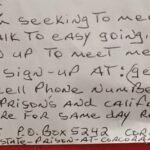 SEEKING TO ME
TO EASY GOING,
UP TO MEET ME
SIGN-UP AT: (GE
CELL PHONE NUMBE
PRISONS AND CALIF
RE FOR SAME DAY R
P.O. BOX 5242 CORC
STATE-PRISON-AT-CORCORA